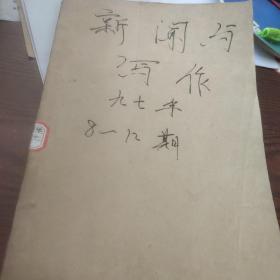 新闻与
写作
九七年
8—12期